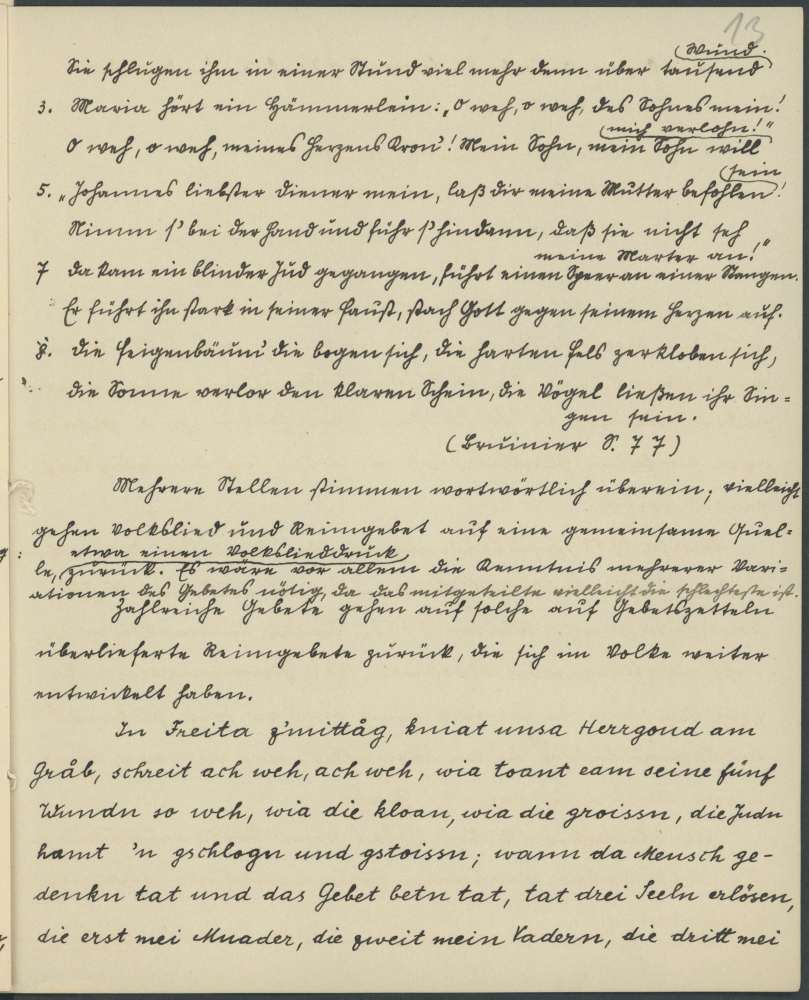 13
(Wund.
Sie schlugen ihm in einer Stund viel mehr denn über tausend
3. Maria hört ein Hämmerlein: „O weh, o weh, des Sohnes mein!
(mich verlohn!"
O weh, o weh, meines Herzens Kron'! Mein Sohn, mein Sohn will
(sein
5. „Johannes liebster Diener mein, laß dir meine Mutter befohlen!
Nimm s' bei der Hand und führ s' hindann, daß sie nicht seh
meine Marter an!"
7 Da kam ein blinder Jud gegangen, führt einen Speer an einer Stangen.
Er führt ihn stark in seiner Faust, stach Gott gegen seinem Herzen auf.
8. Die Feigenbäum' die bogen sich, die harten Fels zerkloben sich,
die Sonne verlor den klaren Schein, die Vögel ließen ihr Sin=
gen sein.
(Bruinier S. 77)
Mehrere Stellen stimmen wortwörtlich überein; vielleicht
gehen Volkslied und Reimgebet auf eine gemeinsame Quel=
etwa einen Volksliederdruck
le, zurück. Es wäre vor allem die Kenntnis mehrerer Vari=
ationen des Gebetes nötig, da das mitgeteilte vielleicht die schlechteste ist.
Zahlreiche Gebete gehen auf solche auf Gebetszetteln
überlieferte Reimgebete zurück, die sich im Volke weiter
entwickelt haben.
In Freita z'mittåg, kniat unsa Herrgoud am
Gråb, schreit ach weh, ach weh, wia toant eam seine fünf
Wundn so weh, wia die kloan, wia die groissn, die Judn
hamt 'n gschlogn und gstoissn; wann da Mensch ge-
denkn tat und das Gebet betn tat, tat drei Seeln erlösen,
die erst mei Muader, die zweit mein Vadern, die dritt mei